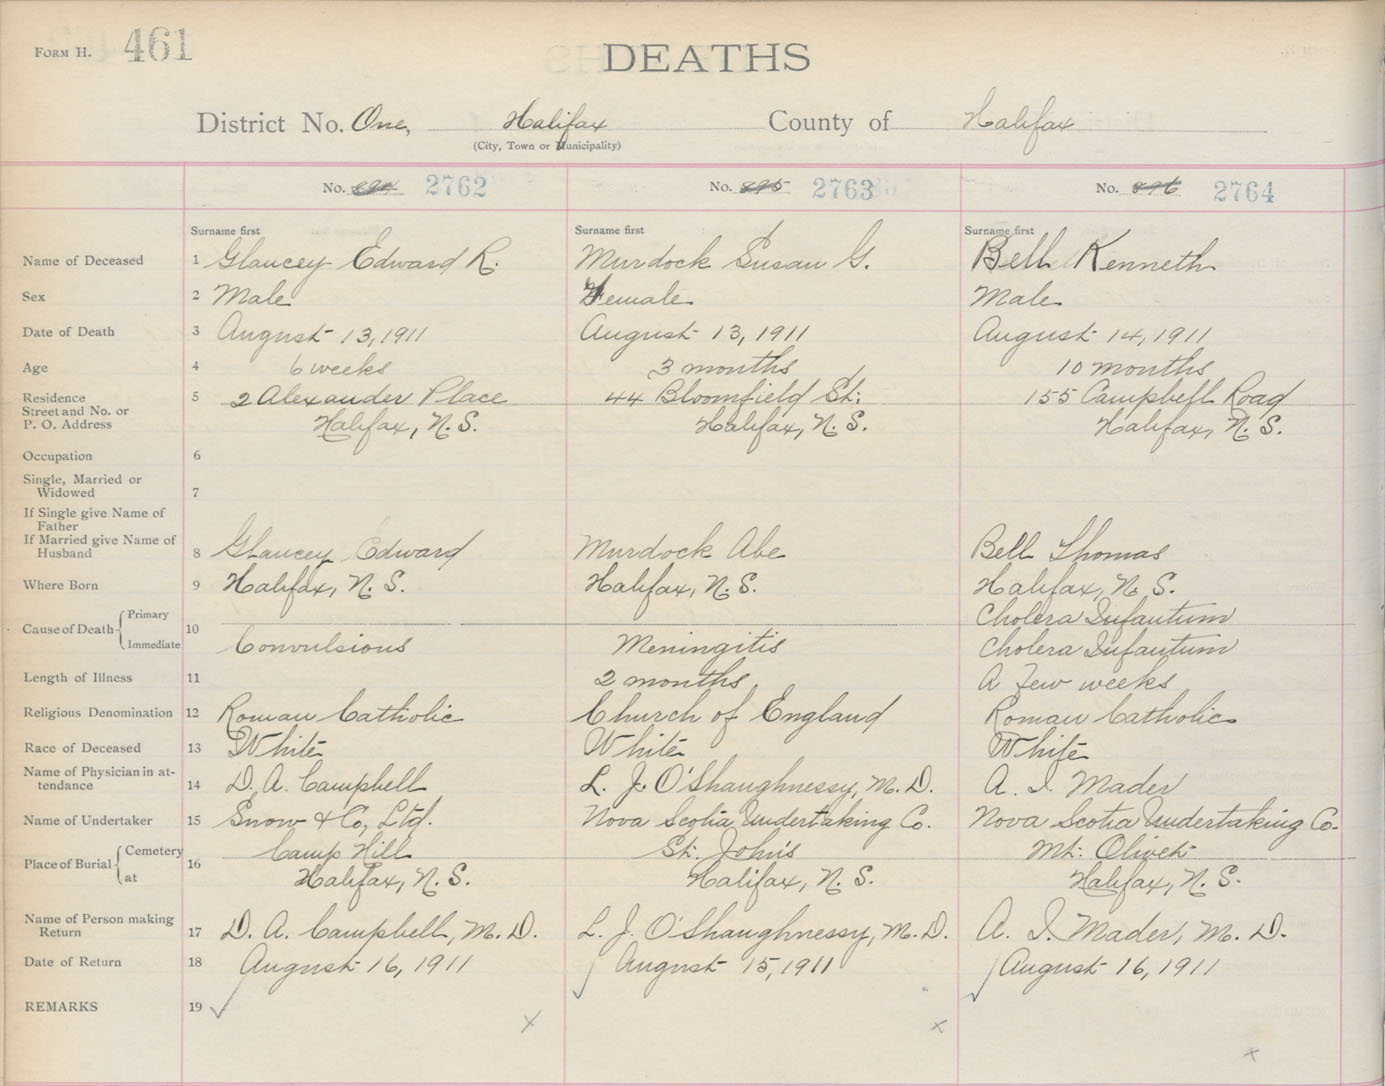 FORM H. 461
DEATHS
District No. One, Halifax County of Halifax
(City, Town or Municipality)
No. 894 2762 No. 895 2763 No. 896 2764
Surname first Surname first Surname first
Name of Deceased 1 Glaucey Edward R. Murdock Susan G. Bell Kenneth
Sex 2 Male Female Male
Date of Death 3 August 13, 1911 August 13, 1911 August 14, 1911
Age 4 6 weeks 3 months 10 months
Residence 5 2 Alexander Place 44 Bloomfield St. 155 Campbell Road
Street and No. or
P. O. Address Halifax, N. S. Halifax, N. S. Halifax, N. S.
Occupation 6
Single, Married or
Widowed 7
If Single give Name of
Father
If Married give Name of
Husband 8 Glaucey Edward Murdock Abe Bell Thomas
Where Born 9 Halifax, N. S. Halifax, N. S. Halifax, N. S.
Primary Cholera Infantum
Cause of Death 10
Immediate Convulsions Meningitis Cholera Infantum
Length of Illness 11 2 months A Few weeks
Religious Denomination 12 Roman Catholic Church of England Roman Catholic
Race of Deceased 13 White White White
Name of Physician in at-
tendance 14 D. A. Campbell L. J. O'Shaughnessy, M. D. A. I. Mader
Name of Undertaker 15 Snow & Co, Ltd. Nova Scotia Undertaking Co. Nova Scotia Undertaking Co.
Cemetery Camp Hill St. John's Mt. Olivet
Place of Burial 16
at Halifax, N. S. Halifax, N. S. Halifax, N. S.
Name of Person making
Return 17 D. A. Campbell, M. D. L. J. O'Shaughnessy, M. D. A. I. Mader, M. D.
Date of Return 18 August 16, 1911 August 15, 1911 August 16, 1911
REMARKS 19